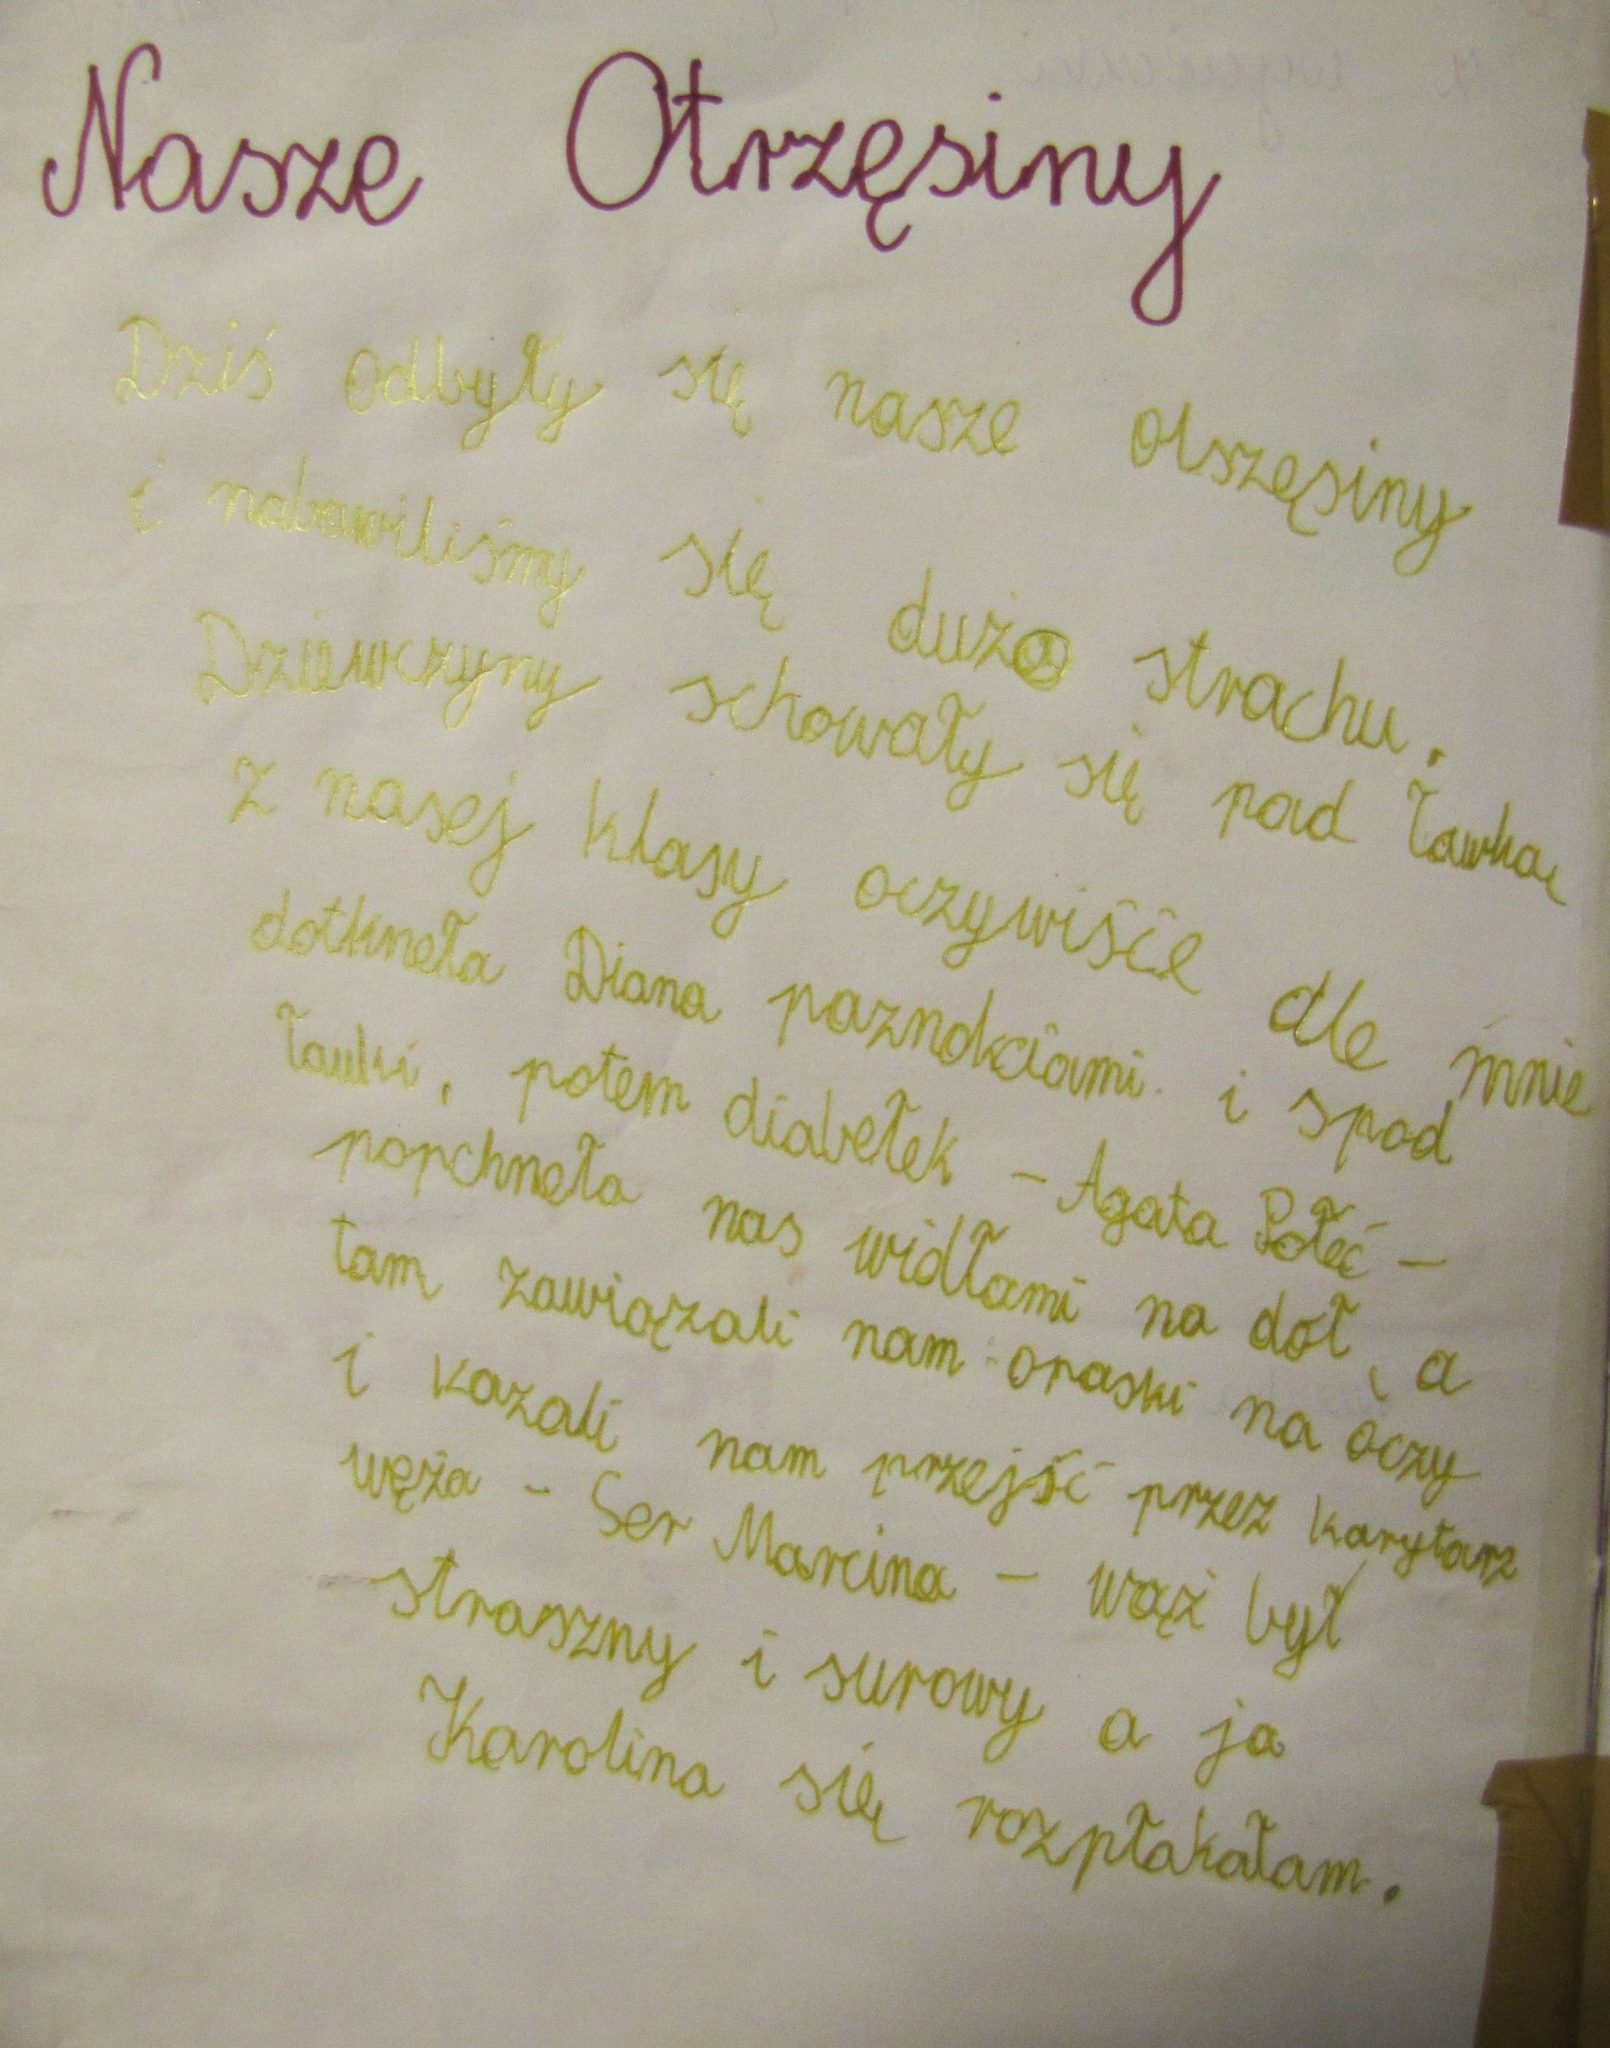 Nasze Otrzęsiny
Dziś odbyły się nasze otszęsiny
i nabawiliśmy się dużo strachu.
Dziewczyny schowały się pod ławką
z nasej klasy oczywiście dle mnie
dotkneła Diana paznokciami i spod
ławki, potem diabełek - Agata Połeć -
popchneła nas widłami na doł, a
tam zawiązali nam opaski na oczy
i kazali nam przejść przez karytarz
węża - Ser Marcina - wąż był
straszny i surowy a ja
Karolina się rozpłakałam.